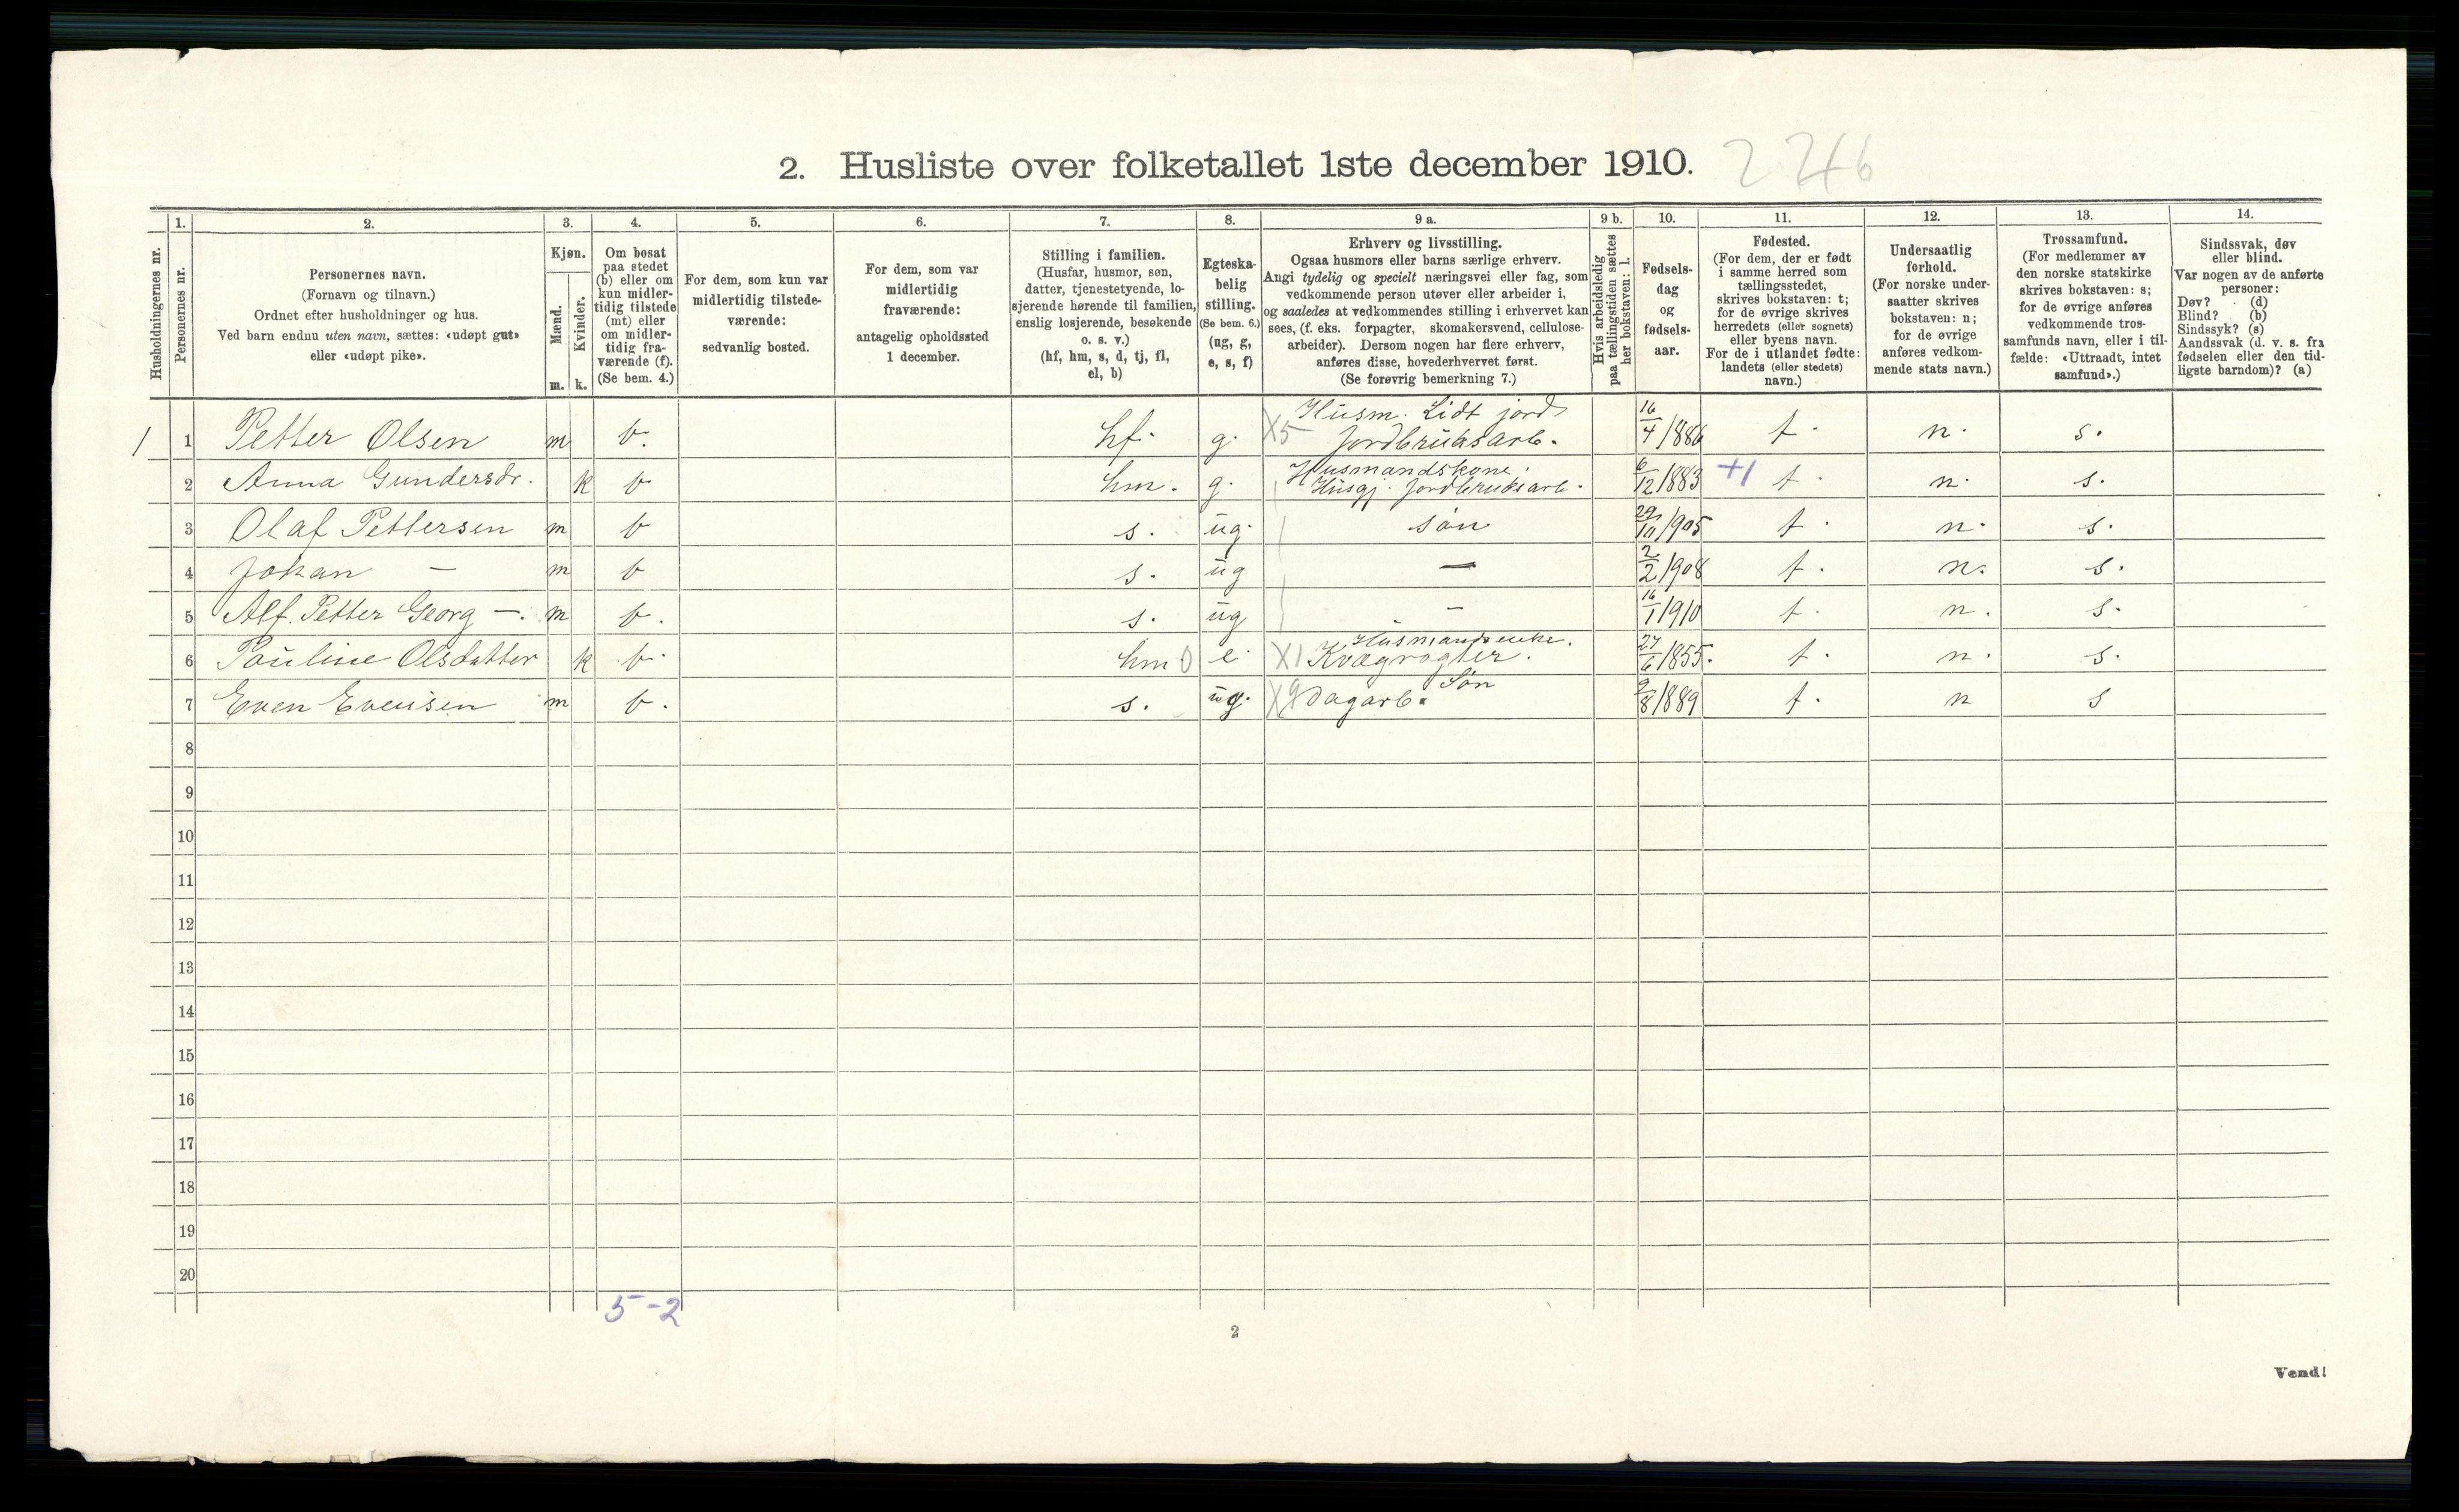 2. Husliste over folketallet 1ste december 1910. 2 246
Husholdningernes nr.
1.
Personernes nr.
2.
Personernes navn.
(Fornavn og tilnavn.)
Ordnet efter husholdninger og hus.
Ved barn endnu uten navn, sættes: «udøpt gut»
eller «udøpt pike».
3.
Kjøn.
Mænd.
Kvinder.
m. k.
4.
Om bosat
paa stedet
(b) eller om
kun midler-
tidig tilstede
(mt) eller
om midler-
tidig fra-
værende (f).
(Se bem. 4.)
5.
For dem, som kun var
midlertidig tilstede-
værende:
sedvanlig bosted.
6.
For dem, som var
midlertidig
fraværende:
antagelig opholdssted
1 december.
7.
Stilling i familien.
(Husfar, husmor, søn,
datter, tjenestetyende, lo-
sjerende hørende til familien,
enslig losjerende, besøkende
o. s. v.)
(hf, hm, s, d, tj, fl,
el, b)
8.
Egteska-
belig
stilling.
(Se bem. 6.)
(ug, g,
e, s, f)
9 a.
Erhverv og livsstilling.
Ogsaa husmors eller barns særlige erhverv.
Angi tydelig og specielt næringsvei eller fag, som
vedkommende person utøver eller arbeider i,
og saaledes at vedkommendes stilling i erhvervet kan
sees, (f. eks. forpagter, skomakersvend, cellulose-
arbeider). Dersom nogen har flere erhverv,
anføres disse, hovederhvervet først.
(Se forøvrig bemerkning 7.)
9 b.
Hvis arbeidsledig
paa tællingstiden sættes
her bokstaven: l.
10.
Fødsels-
dag
og
fødsels-
aar.
11.
Fødested.
(For dem, der er født
i samme herred som
tællingsstedet,
skrives bokstaven: t;
for de øvrige skrives
herredets (eller sognets)
eller byens navn.
For de i utlandet fødte:
landets (eller stedets)
navn.)
12.
Undersaatlig
forhold.
(For norske under-
saatter skrives
bokstaven: n;
for de øvrige
anføres vedkom-
mende stats navn.)
13.
Trossamfund.
(For medlemmer av
den norske statskirke
skrives bokstaven: s;
for de øvrige anføres
vedkommende tros-
samfunds navn, eller i til-
fælde: «Uttraadt, intet
samfund».)
14.
Sindssvak, døv
eller blind.
Var nogen av de anførte
personer:
Døv? (d)
Blind? (b)
Sindssyk? (s)
Aandssvak (d. v. s. fra
fødselen eller den tid-
ligste barndom)? (a)
1 1 Petter Olsen m b. hf. g. X5 Husm. Lidt jord Jordbruksarb. 16/4 1886 t. n. s.
2 Anna Gundersdr. k b hm. g. Husmandskone. Husgj. Jordbruksarb. 6/12 1883 +1 t. n. s.
3 Olaf Pettersen m b s. ug. søn 29/10 1905 t. n. s.
4 Johan — m b s. ug — 2/2 1908 t. n. s.
5 Alf. Petter Georg —. m b. s. ug — 16/1 1910 t. n. s.
6 Pauline Olsdatter k b. hm 0 e. X1 Husmandsenke. Kvægrøgter. 27/6 1855. t. n. s.
7 Even Evensen m b. s. ug. X9 Søn Dagarb. 9/8 1889 t. n s
8
9
10
11
12
13
14
15
16
17
18
19
20
5-2
2
Vend!